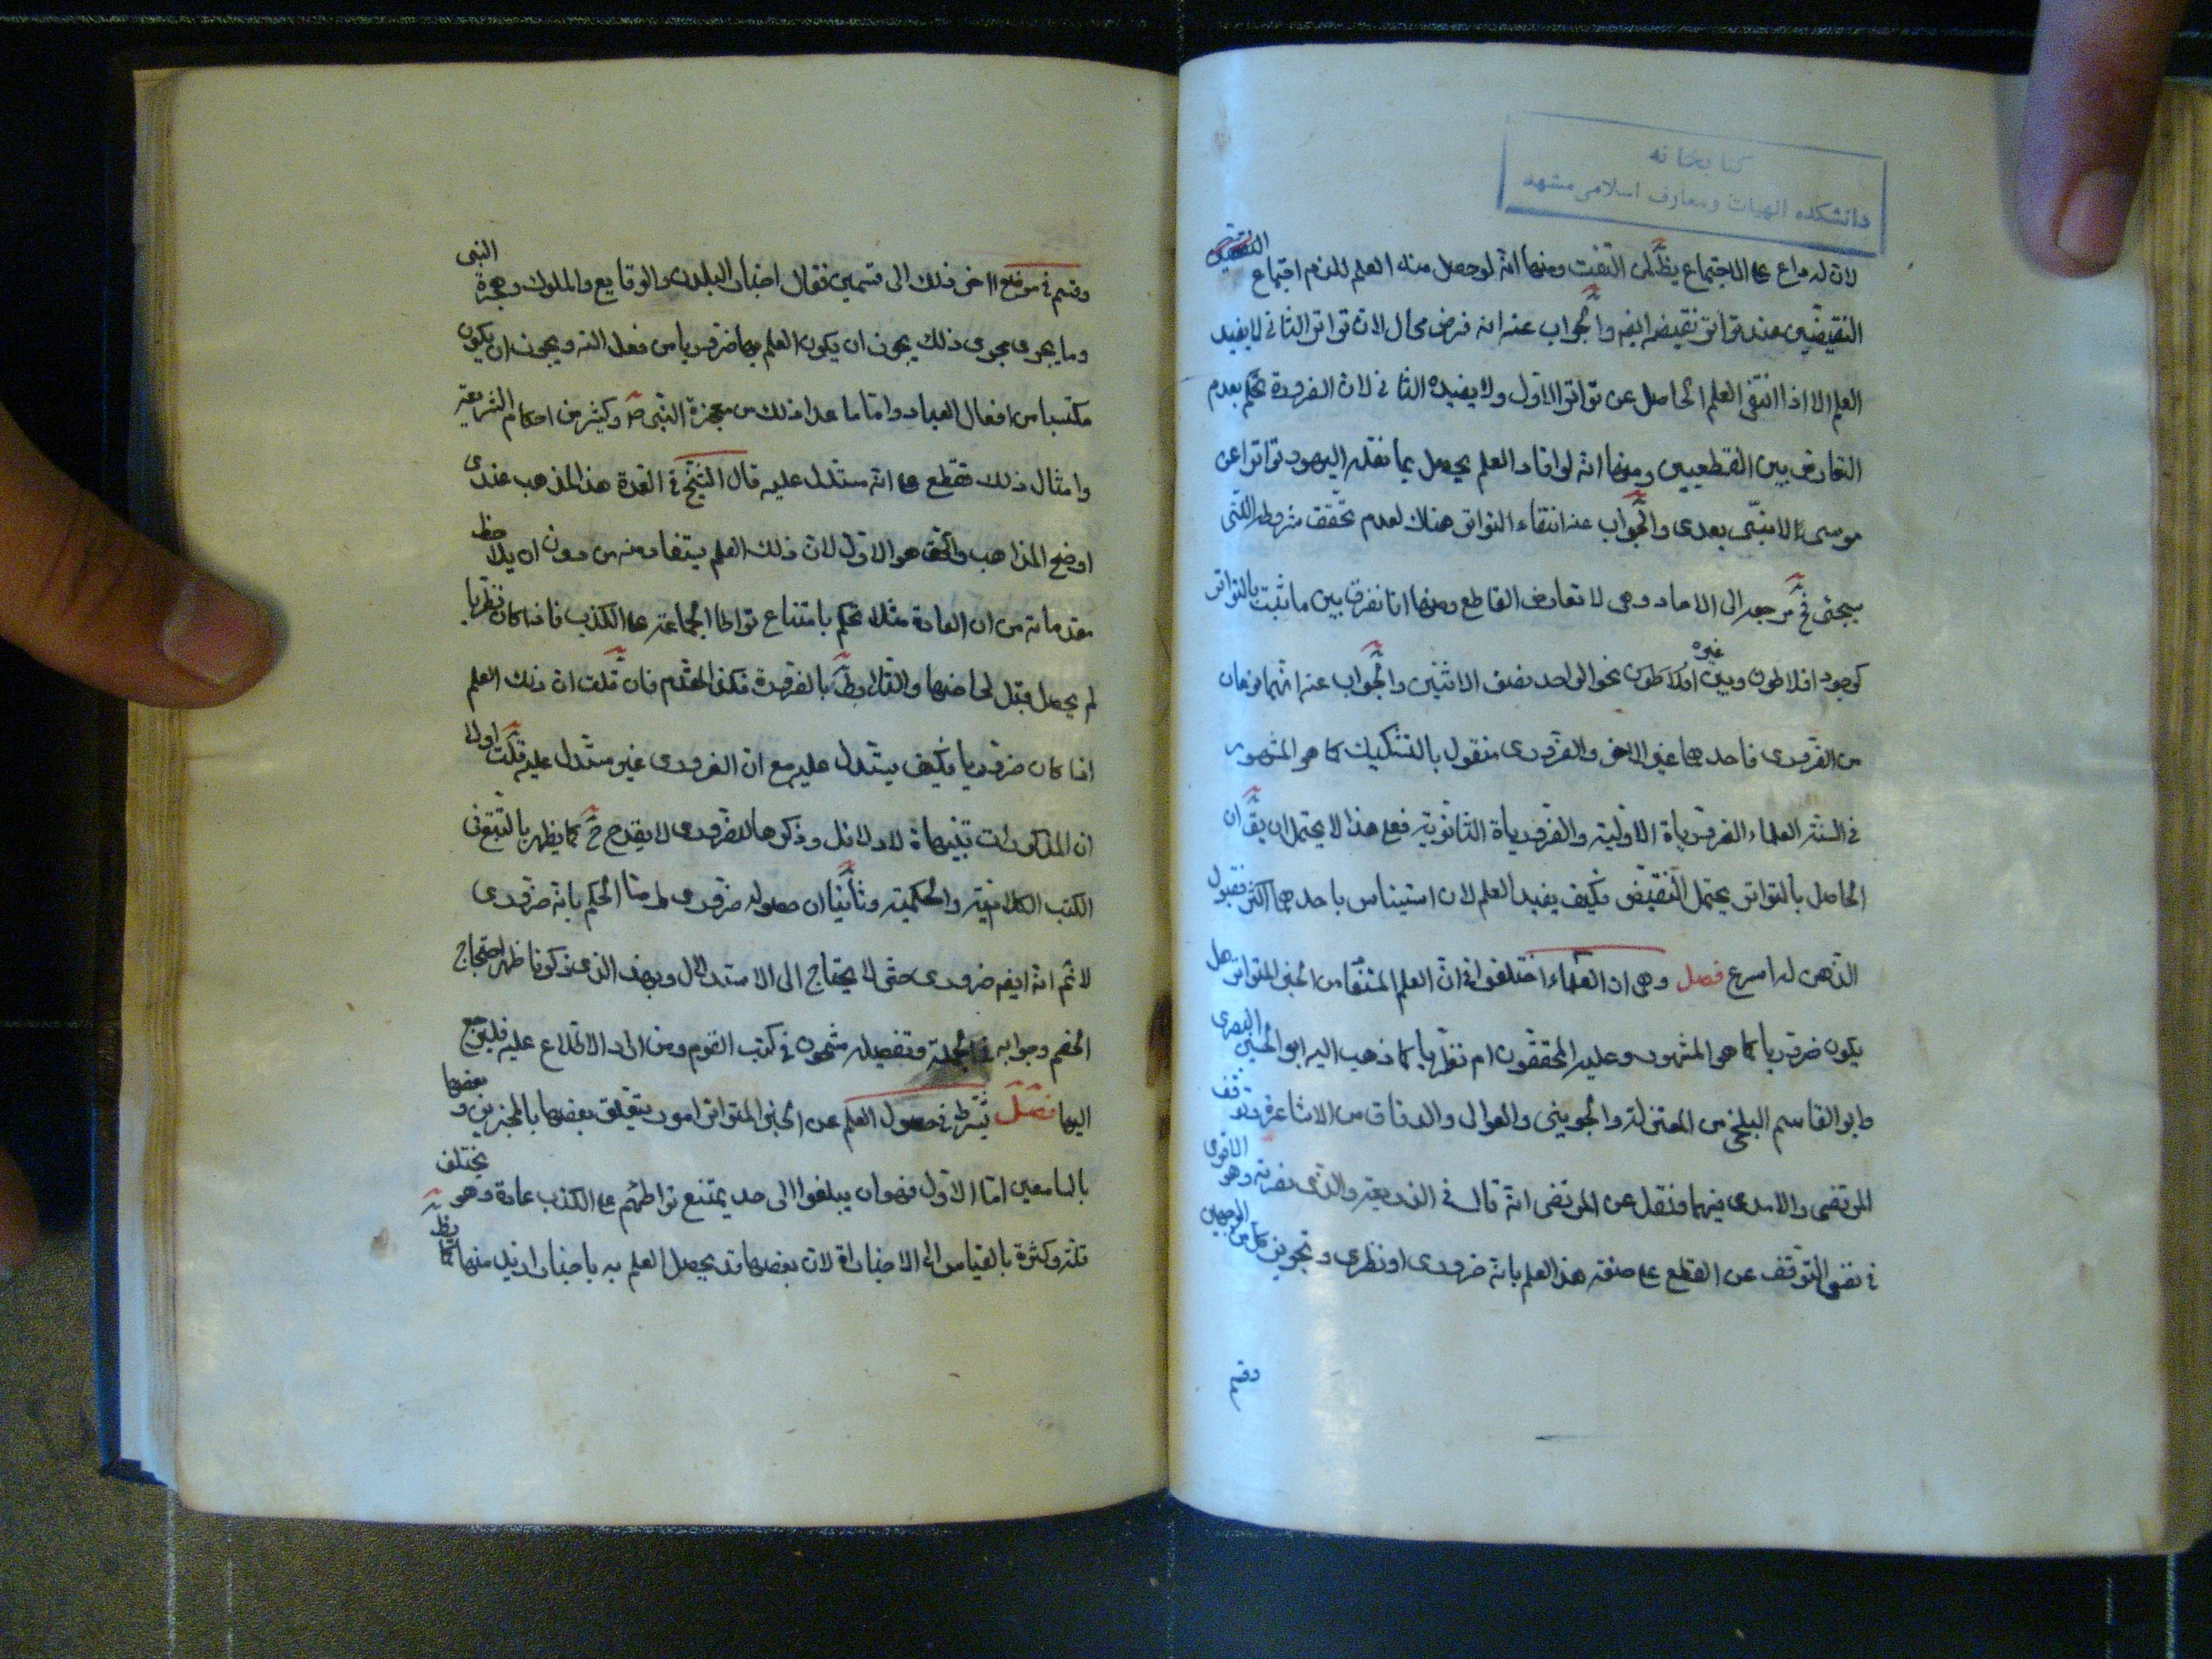 كتابخانه
دانشكده الهيات ومعارف اسلامى مشهد
لان له داع على الاجتماع يظهر لمن التفت ومنها انه لو حصل منه العلم للزم اجتماع
النقيضين عند تواتر نقيضه ايضه والجواب عنه انه فرض محال لان تواتر الثانى لا يفيد
العلم الا اذا انتفى العلم الحاصل عن تواتر الاول ولا يفيده الثانى لان الضرورة تحكم بعدم
التعارض بين القطعيين ومنها انه لو افاد العلم يحصل بما نقله اليهود تواترا عن
موسى لا نبى بعدى والجواب عنه انتفاء التواتر هناك لعدم تحقق شروطه التى
سيجئ فمرجعه الى الاحاد وهى لا تعارض القاطع ومنها انا نفرق بين ما ثبت بالتواتر
كوجود افلاطون وبين غيره نحو الواحد نصف الاثنين والجواب عنه انهما نوعان
من الضرورى فاحدهما غير الاخر والضرورى منقول بالتشكيك كما هو المشهور
فى السنة العلماء الضروريات الاولية والضروريات الثانوية فعلى هذا لا يحتمل ان يق ان
الحاصل بالتواتر يحتمل النقيض فكيف يفيد العلم لان استيناس باحدهما اكثر فقبول
الذهن له اسرع فصل وهى ان العلماء اختلفوا فى ان العلم المستفا من الخبر المتواتر هل
يكون ضروريا كما هو المشهور وعليه المحققون ام نظريا كما ذهب اليه ابو الحسين البصرى
وابو القاسم البلخى من المعتزلة والجوينى والغزالى والدقاق من الاشاعرة وتوقف
المرتضى والامدى فيهما ونقل عن المرتضى انه قال فى الذريعة والذى نصرته وهو الاقوى
فى نفسى التوقف عن القطع على صفة هذا العلم بانه ضرورى او نظرى وتجويز كل من الوجهين
وقسم
وقسم فى موضع اخر ذلك الى قسمين فقال اخبار البلدان والوقايع والملوك وهجرة النبى
وما يجرى مجرى ذلك يجوز ان يكون العلم بها ضروريا من فعل الله ويجوز ان يكون
مكتسبا من افعال العباد واما ما عدا ذلك من معجزة النبى ص وكثير من احكام الشريعة
وامثال ذلك فقطع على انه مستدل عليه قال الشيخ فى العدة هذا المذهب عندى
اوضح المذاهب والحق هو الاول لان ذلك العلم يستفاد منه من دون ان يلاحظ
مقدماته من ان العادة مثلا تحكم بامتناع تواطا الجماعة على الكذب فاذا كان نظريا
لم يحصل قبل لحاضها والتالى بط بالضرورة فكذا المقدم فان قلت ان ذلك العلم
اذا كان ضروريا فكيف يستدل عليه مع ان الضرورى غير مستدل عليه قلت اولا
ان المذكورات تنبيهات لا دلائل وذكرها للضرورى لا يقدح كما يظهر بالتتبع فى
الكتب الكلامية والحكمية وثانيا ان حصوله ضرورى واما الحكم بانه ضرورى
لا نم انه ايضه ضرورى حتى لا يحتاج الى الاستدلال وبهذا الذى ذكرنا ظهر احتجاج
الخصم وجوابه فى الجملة وتفصيله مشحون فى كتب القوم ومن اراد الاطلاع عليه فليرجع
اليها فصل يشترط فى حصول العلم عن الخبر المتواتر امور يتعلق بعضها بالمخبرين وبعضها
بالسامعين اما الاول فهو ان يبلغوا الى حد يمتنع تواطئهم على الكذب عادة وهو يختلف
قلة وكثرة بالقياس الى الاخبارات لان بعضها قد يحصل العلم به باخبار ازيد منها كما يظهر